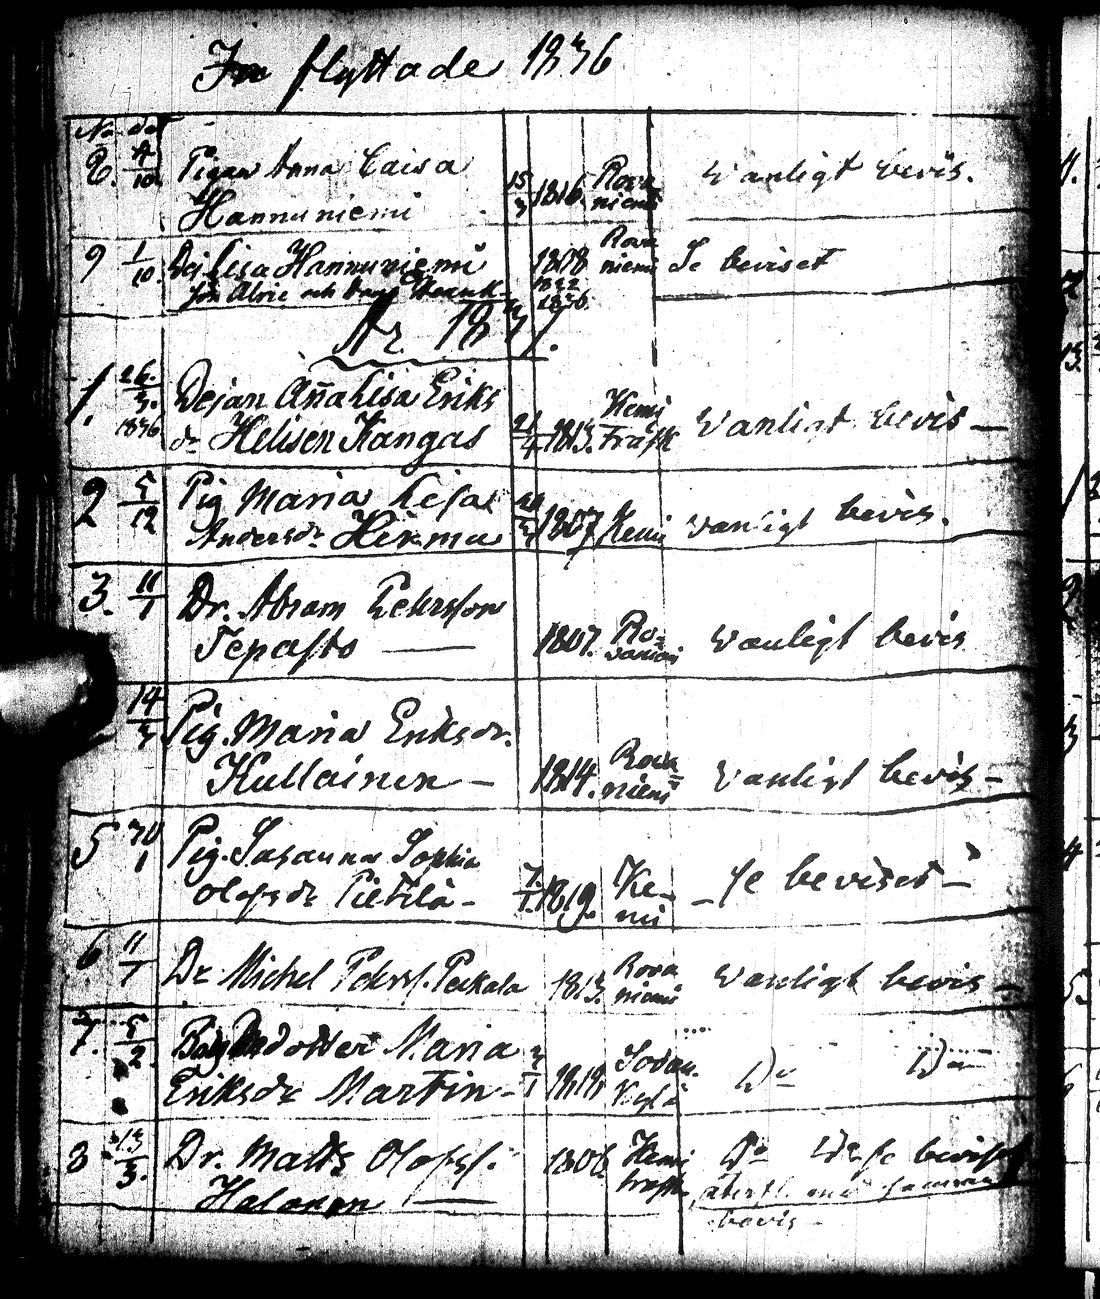 In flyttade 1836
No dat
8. 4/10 Pigan Anna Caisa
Hannuniemi 15/3 1816. Rova niemi Vanligt bevis.
9 1/10 Dej Lisa Hannuniemi 1808 Rova niemi Se beviset
1822
1836.
År 1837.
1. 26/3. 1836 Dejan Aña Lisa Eriks
dr Helisen Kangas 21/4 1813. Kemi Träsk Vanligt bevis —
2 5/12 Pig Maria Lisa
Andersdr Hirmu 1807 Kemi vanligt bevis.
3. 11/1 Dr. Abram Petersson
Tepasto — 1807. Ro- vaniemi Vanligt bevis
14/3 Pig. Maria Eriksdr.
Kullainen — 1814. Rova niemi Vanligt bevis —
5 30/1 Pig. Susanna Sophia
Olofsdr Pietilä - 7/1. 1819. Ke- mi - Se beviset —
6 11/1 Dr Michel Peterss. Pekkala 1813. Rova niemi Vanligt bevis —
7. 5/2 dotter Maria
Eriksdr Martin - 3/1 1819 Sodan. Kylä Do Do
8 13/3. Dr. Matts Olofss.
Halonen — 1806 Kemi träsk Do Do se beviset
bevis —